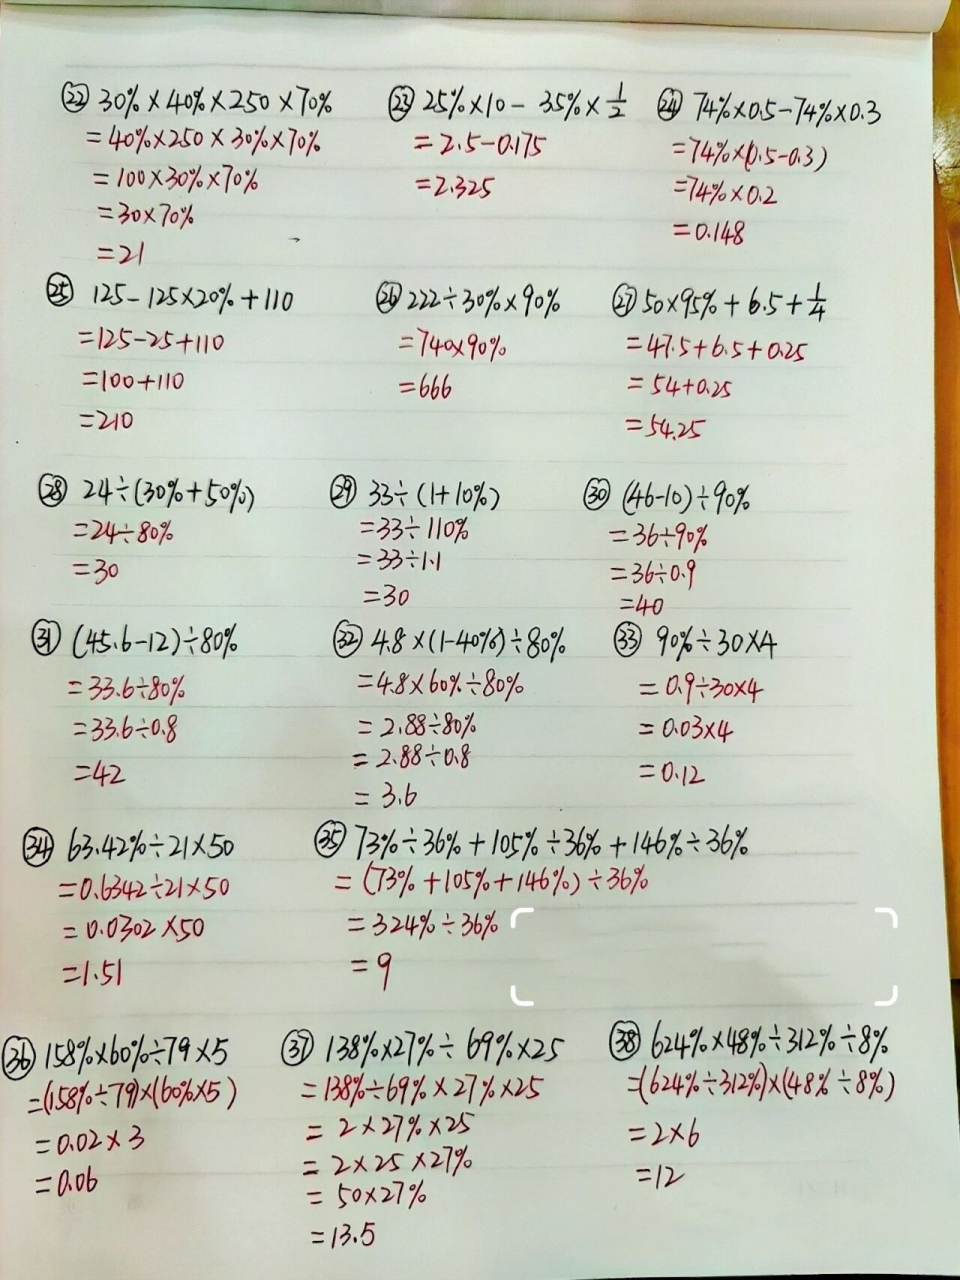 ㉒ 30%×40%×250×70%
=40%×250×30%×70%
=100×30%×70%
=30×70%
=21
㉓ 25%×10-35%×1/2
=2.5-0.175
=2.325
㉔ 74%×0.5-74%×0.3
=74%×(0.5-0.3)
=74%×0.2
=0.148
㉕ 125-125×20%+110
=125-25+110
=100+110
=210
㉖ 222÷30%×90%
=740×90%
=666
㉗ 50×95%+6.5+1/4
=47.5+6.5+0.25
=54+0.25
=54.25
㉘ 24÷(30%+50%)
=24÷80%
=30
㉙ 33÷(1+10%)
=33÷110%
=33÷1.1
=30
㉚ (46-10)÷90%
=36÷90%
=36÷0.9
=40
㉛ (45.6-12)÷80%
=33.6÷80%
=33.6÷0.8
=42
㉜ 4.8×(1-40%)÷80%
=4.8×60%÷80%
=2.88÷80%
=2.88÷0.8
=3.6
㉝ 90%÷30×4
=0.9÷30×4
=0.03×4
=0.12
㉞ 63.42%÷21×50
=0.6342÷21×50
=0.0302×50
=1.51
㉟ 73%÷36%+105%÷36%+146%÷36%
=(73%+105%+146%)÷36%
=324%÷36%
=9
㊱ 158%×60%÷79×5
=(158%÷79)×(60%×5)
=0.02×3
=0.06
㊲ 138%×27%÷69%×25
=138%÷69%×27%×25
=2×27%×25
=2×25×27%
=50×27%
=13.5
㊳ 624%×48%÷312%÷8%
=(624%÷312%)×(48%÷8%)
=2×6
=12